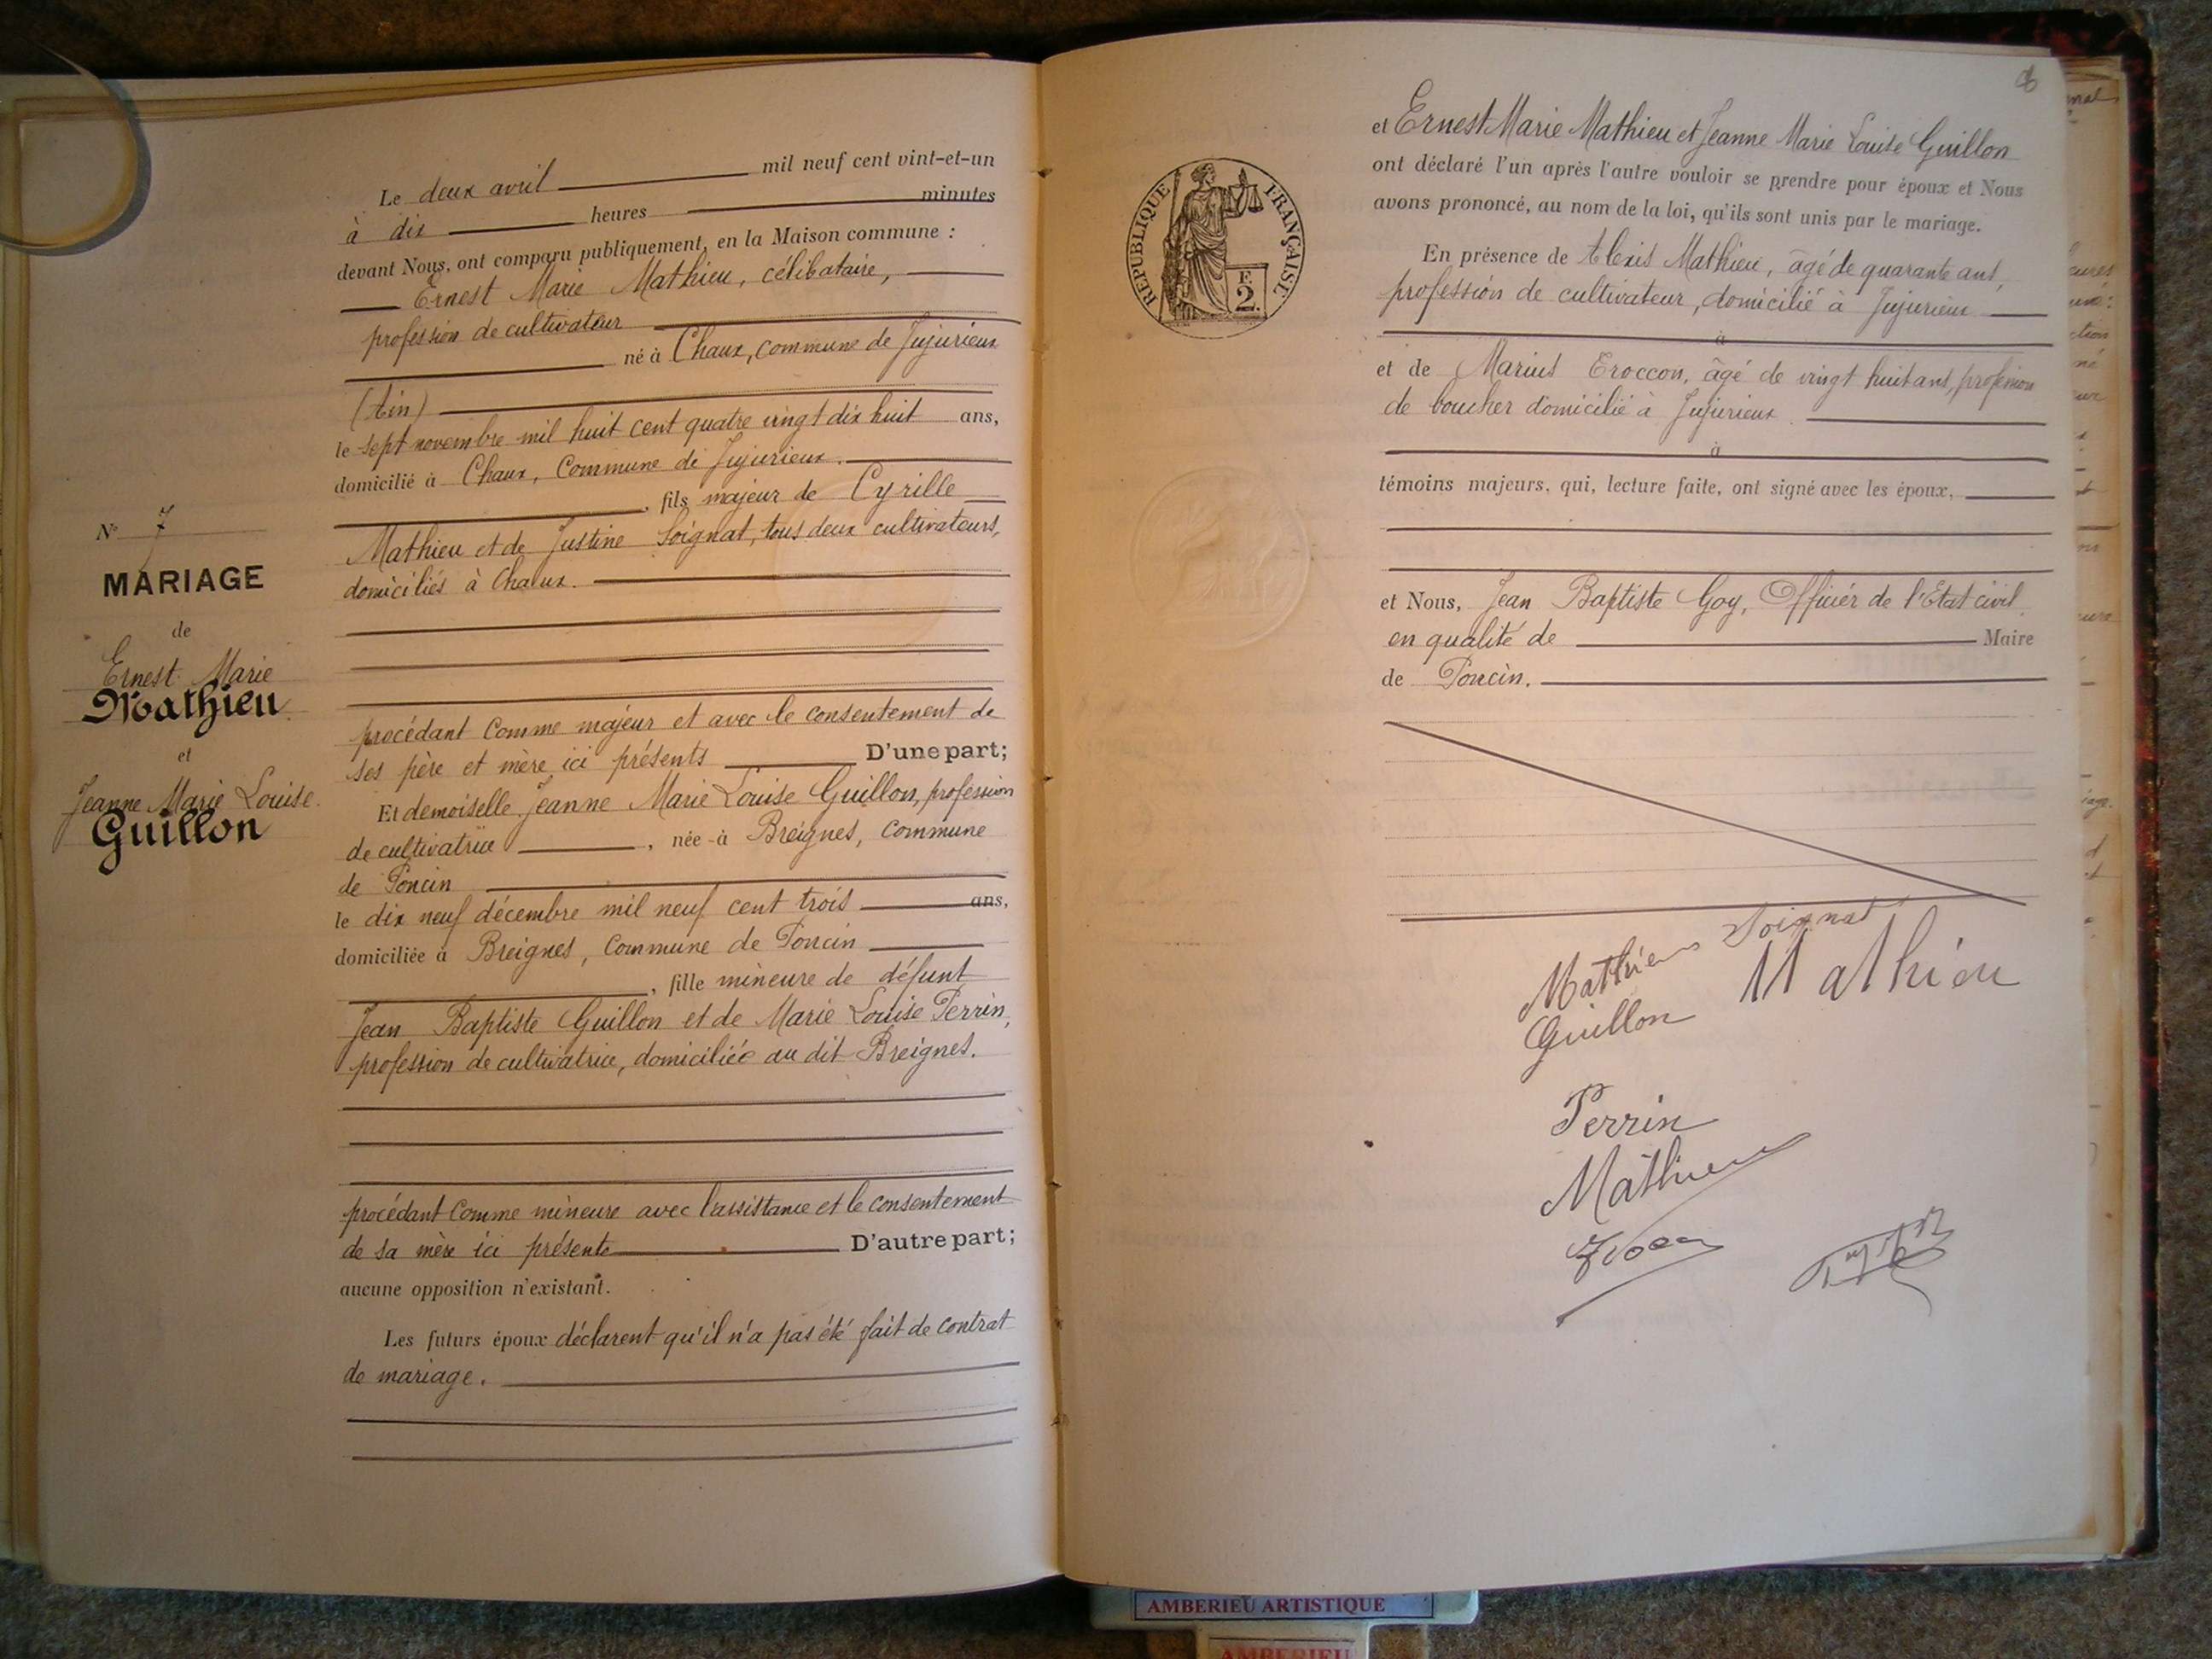 N° 7
MARIAGE
de
Ernest Marie
Mathieu
et
Jeanne Marie Louise
Guillon
Le deux avril mil neuf cent vint-et-un
à dix heures minutes
devant Nous, ont comparu publiquement, en la Maison commune :
Ernest Marie Mathieu, célibataire,
profession de cultivateur
né à Chaux, commune de Jujurieux
(Ain)
le sept novembre mil huit cent quatre vingt dix huit ans,
domicilié à Chaux, Commune de Jujurieux.
, fils majeur de Cyrille
Mathieu et de Justine Soignat, tous deux cultivateurs,
domiciliés à Chaux.
procédant comme majeur et avec le consentement de
ses père et mère ici présents D'une part;
Et demoiselle Jeanne Marie Louise Guillon, profession
de cultivatrice , née à Breignes, commune
de Poncin
le dix neuf décembre mil neuf cent trois ans,
domiciliée à Breignes, Commune de Poncin
, fille mineure de défunt
Jean Baptiste Guillon et de Marie Louise Perrin,
profession de cultivatrice, domiciliée au dit Breignes.
procédant comme mineure avec l'assistance et le consentement
de sa mère ici présente D'autre part;
aucune opposition n'existant.
Les futurs époux déclarent qu'il n'a pas été fait de contrat
de mariage.
8
REPUBLIQUE FRANÇAISE
F.
2.
et Ernest Marie Mathieu et Jeanne Marie Louise Guillon
ont déclaré l'un après l'autre vouloir se prendre pour époux et Nous
avons prononcé, au nom de la loi, qu'ils sont unis par le mariage.
En présence de Alexis Mathieu, âgé de quarante ans,
profession de cultivateur, domicilié à Jujurieux
à
et de Marius Eroccon, âgé de vingt huit ans, profession
de boucher domicilié à Jujurieux.
à
témoins majeurs, qui, lecture faite, ont signé avec les époux,
et Nous, Jean Baptiste Goy, Officier de l'Etat civil
en qualité de Maire
de Poncin.
Mathieu Soignat
Guillon Mathieu
Perrin
Mathieu
AMBERIEU ARTISTIQUE
AMBERIEU